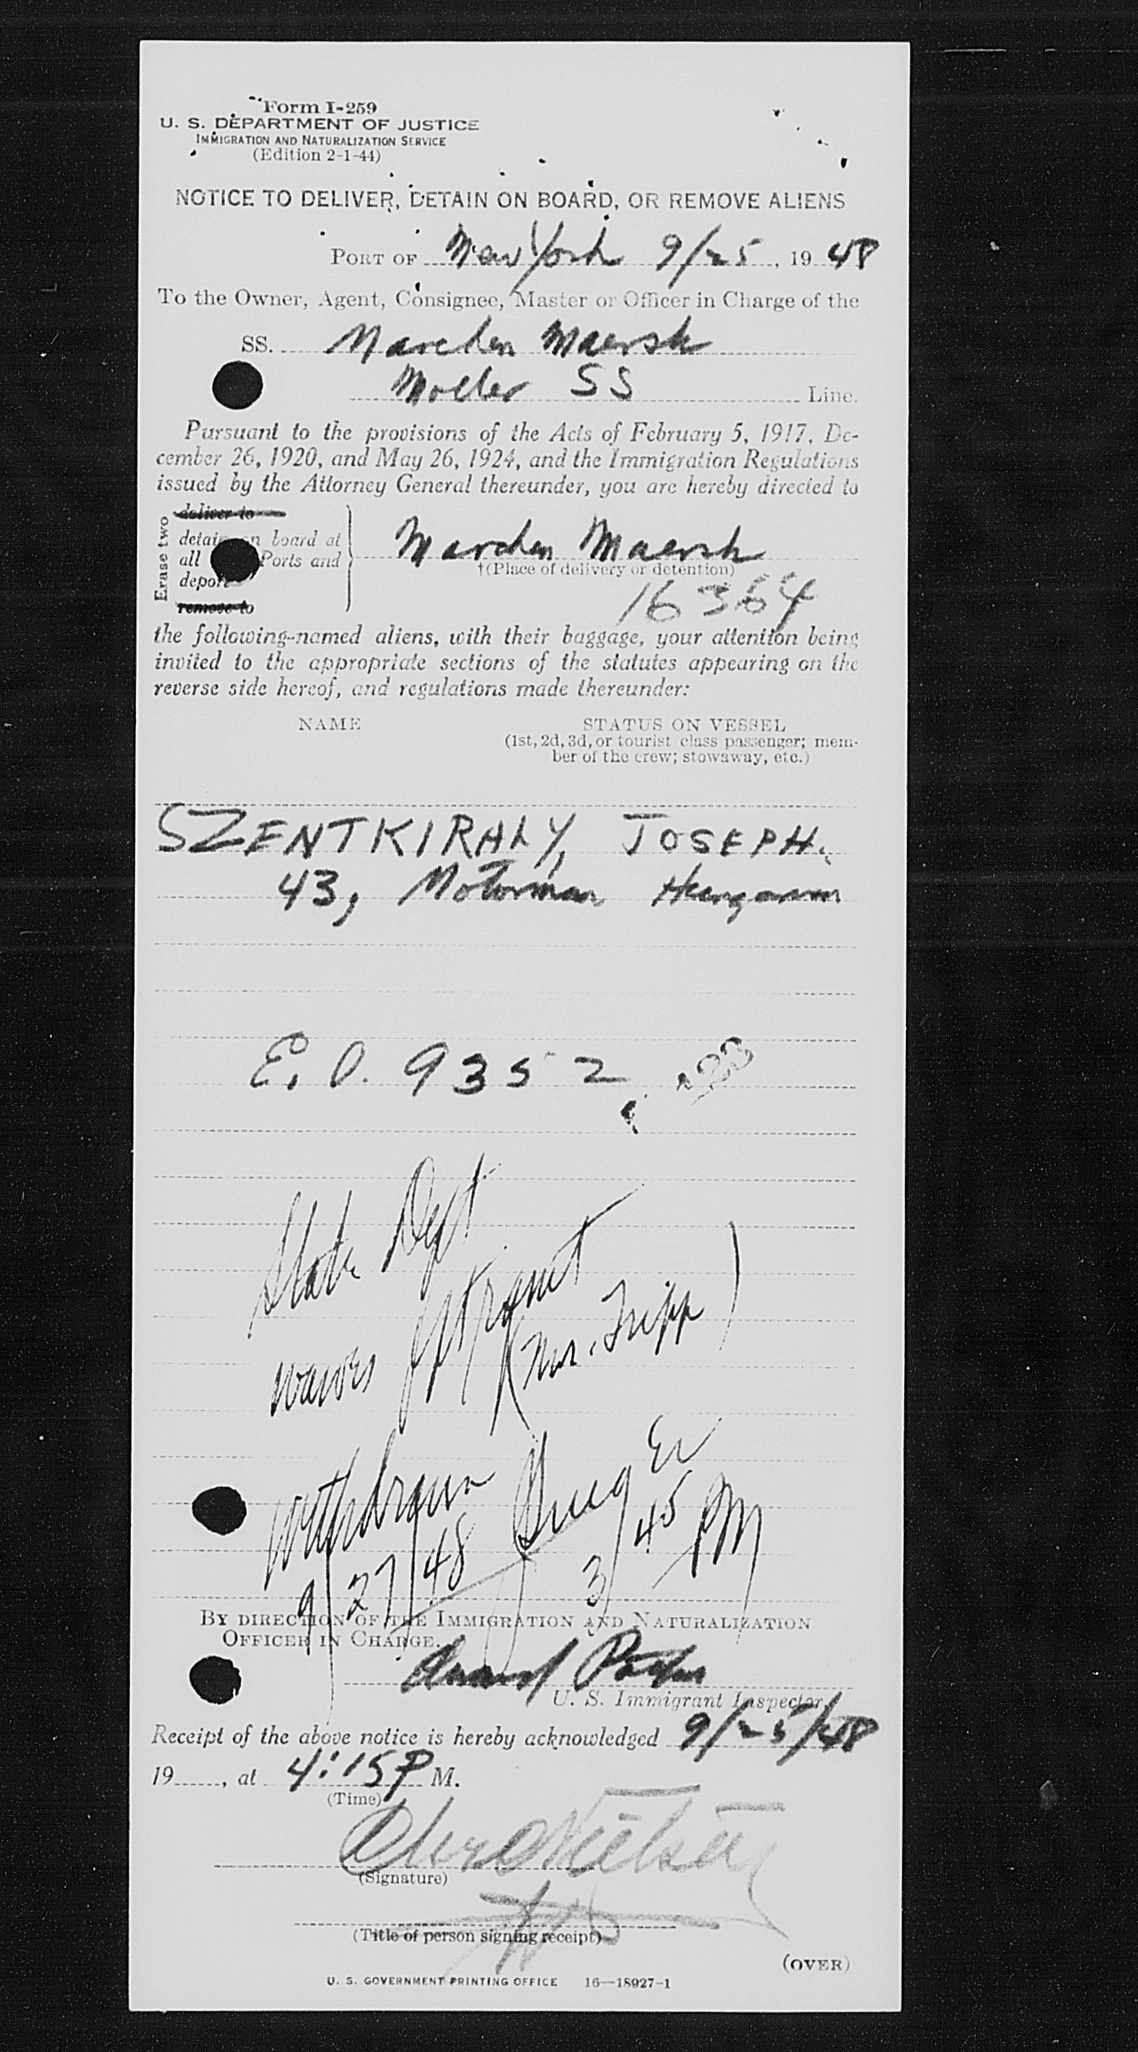 Form I-259
U. S. DEPARTMENT OF JUSTICE
IMMIGRATION AND NATURALIZATION SERVICE
(Edition 2-1-44)
NOTICE TO DELIVER, DETAIN ON BOARD, OR REMOVE ALIENS
PORT OF New York 9/25, 1948
To the Owner, Agent, Consignee, Master or Officer in Charge of the
SS. Marchen Maersk
Moller SS Line.
Pursuant to the provisions of the Acts of February 5, 1917, De-
cember 26, 1920, and May 26, 1924, and the Immigration Regulations
issued by the Attorney General thereunder, you are hereby directed to
Erase two
deliver to
detain on board at
all Ports and
deport
remove to
Marchen Maersk
†(Place of delivery or detention)
16364
the following-named aliens, with their baggage, your attention being
invited to the appropriate sections of the statutes appearing on the
reverse side hereof, and regulations made thereunder:
NAME STATUS ON VESSEL
(1st, 2d, 3d, or tourist class passenger; mem-
ber of the crew; stowaway, etc.)
SZENTKIRALY, JOSEPH.
43, Motorman Hungarian
E. O. 9352
State Dept
waives
(Mr. Tripp)
Withdrawn
9/27/48 3/45 PM
BY DIRECTION OF THE IMMIGRATION AND NATURALIZATION
OFFICER IN CHARGE.
U. S. Immigrant Inspector
Receipt of the above notice is hereby acknowledged 9/25/48
19......, at 4:15 P M.
(Time)
Nielsen
(Signature)
(Title of person signing receipt)
(OVER)
U. S. GOVERNMENT PRINTING OFFICE 16—18927-1